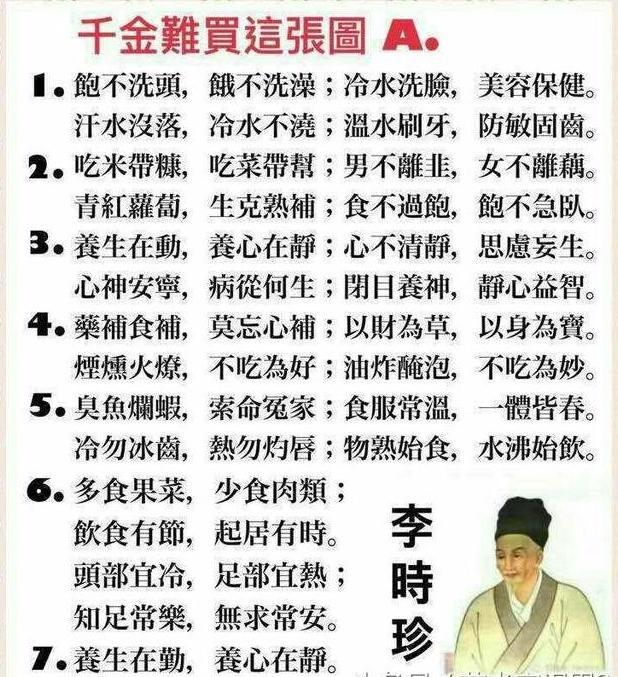 千金難買這張圖 A.
1. 飽不洗頭, 餓不洗澡；冷水洗臉, 美容保健。
汗水沒落, 冷水不澆；溫水刷牙, 防敏固齒。
2. 吃米帶糠, 吃菜帶幫；男不離韭, 女不離藕。
青紅蘿蔔, 生克熟補；食不過飽, 飽不急臥。
3. 養生在動, 養心在靜；心不清靜, 思慮妄生。
心神安寧, 病從何生；閉目養神, 靜心益智。
4. 藥補食補, 莫忘心補；以財為草, 以身為寶。
煙燻火燎, 不吃為好；油炸醃泡, 不吃為妙。
5. 臭魚爛蝦, 索命冤家；食服常溫, 一體皆春。
冷勿冰齒, 熱勿灼唇；物熟始食, 水沸始飲。
6. 多食果菜, 少食肉類；
飲食有節, 起居有時。
頭部宜冷, 足部宜熱；
知足常樂, 無求常安。
7. 養生在勤, 養心在靜。
李時珍